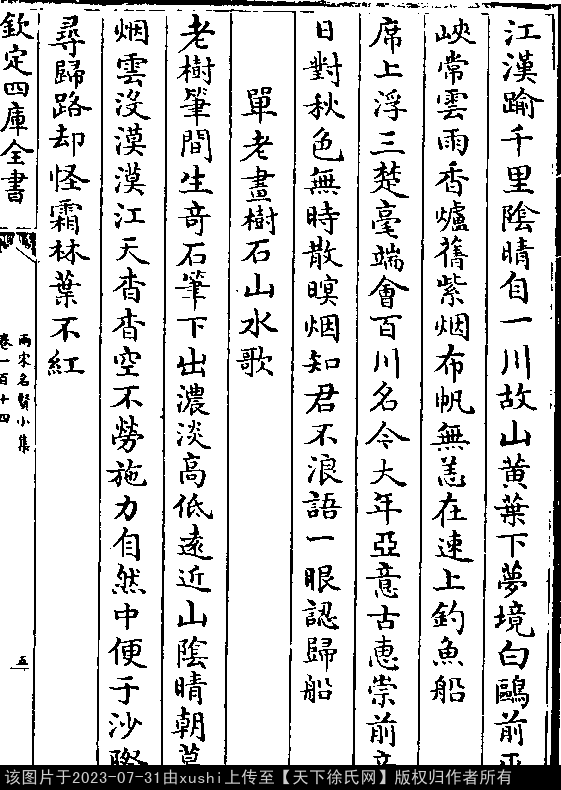 江漢踰千里陰晴自一川故山黄葉下夢境白鷗前巫
峽常雲雨香爐舊紫烟布帆無恙在速上釣魚船
席上浮三楚毫端會百川名今大年亞意古惠崇前
日對秋色無時散暝烟知君不浪語一眼認歸船
單老畫樹石山水歌
老樹筆間生奇石筆下出濃淡高低遠近山陰晴朝莫
烟雲沒漠漠江天杳杳空不勞施力自然中便于沙際
尋歸路却怪霜林葉不紅
欽定四庫全書
兩宋名賢小集
卷一百十四
五
该图片于2023-07-31由xushi上传至【天下徐氏网】版权归作者所有